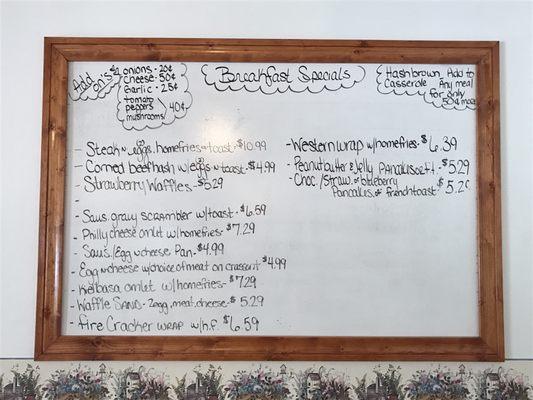 Add on's
onions - 20¢
cheese - 50¢
garlic - 25¢
tomato
peppers 40¢
mushrooms
Breakfast Specials
Hashbrown Add to
Casserole Any meal
for only
50¢ more
- Steak n eggs, homefries n toast - $10.99
- Corned beef hash w/ (2) eggs n toast - $4.99
- Strawberry Waffles - $5.29
-
- Saus. gravy scrambler w/toast - $6.59
- Philly cheese omlet w/homefries - $7.29
- Saus./Egg n cheese Pan. - $4.99
- Egg n cheese w/choice of meat on crassant $4.99
- Kielbasa omlet w/homefries - $7.29
- Waffle Sand - 2egg, meat, cheese - $5.29
- Fire Cracker wrap w/h.f. $6.59
- Western wrap w/homefries - $6.39
- Peanut butter & Jelly Pancakes or f.t. - $5.29
- Choc./Straw. or blueberry
Pancakes or frenchtoast - $5.29